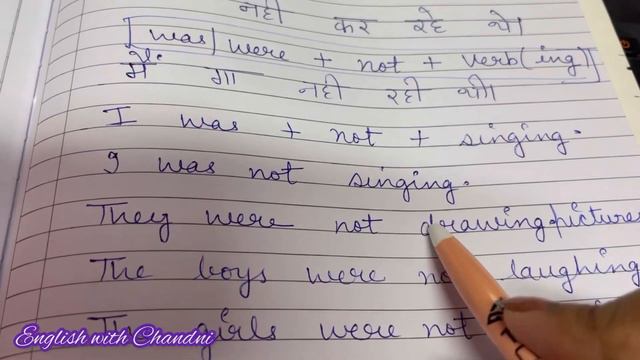 नहीं कर रहे थे।
[was/were + not + verb(ing)]
मैं गा नहीं रही थी।
I was + not + singing.
I was not singing.
They were not drawing pictures
The boys were not laughing
The girls were not
English with Chandni